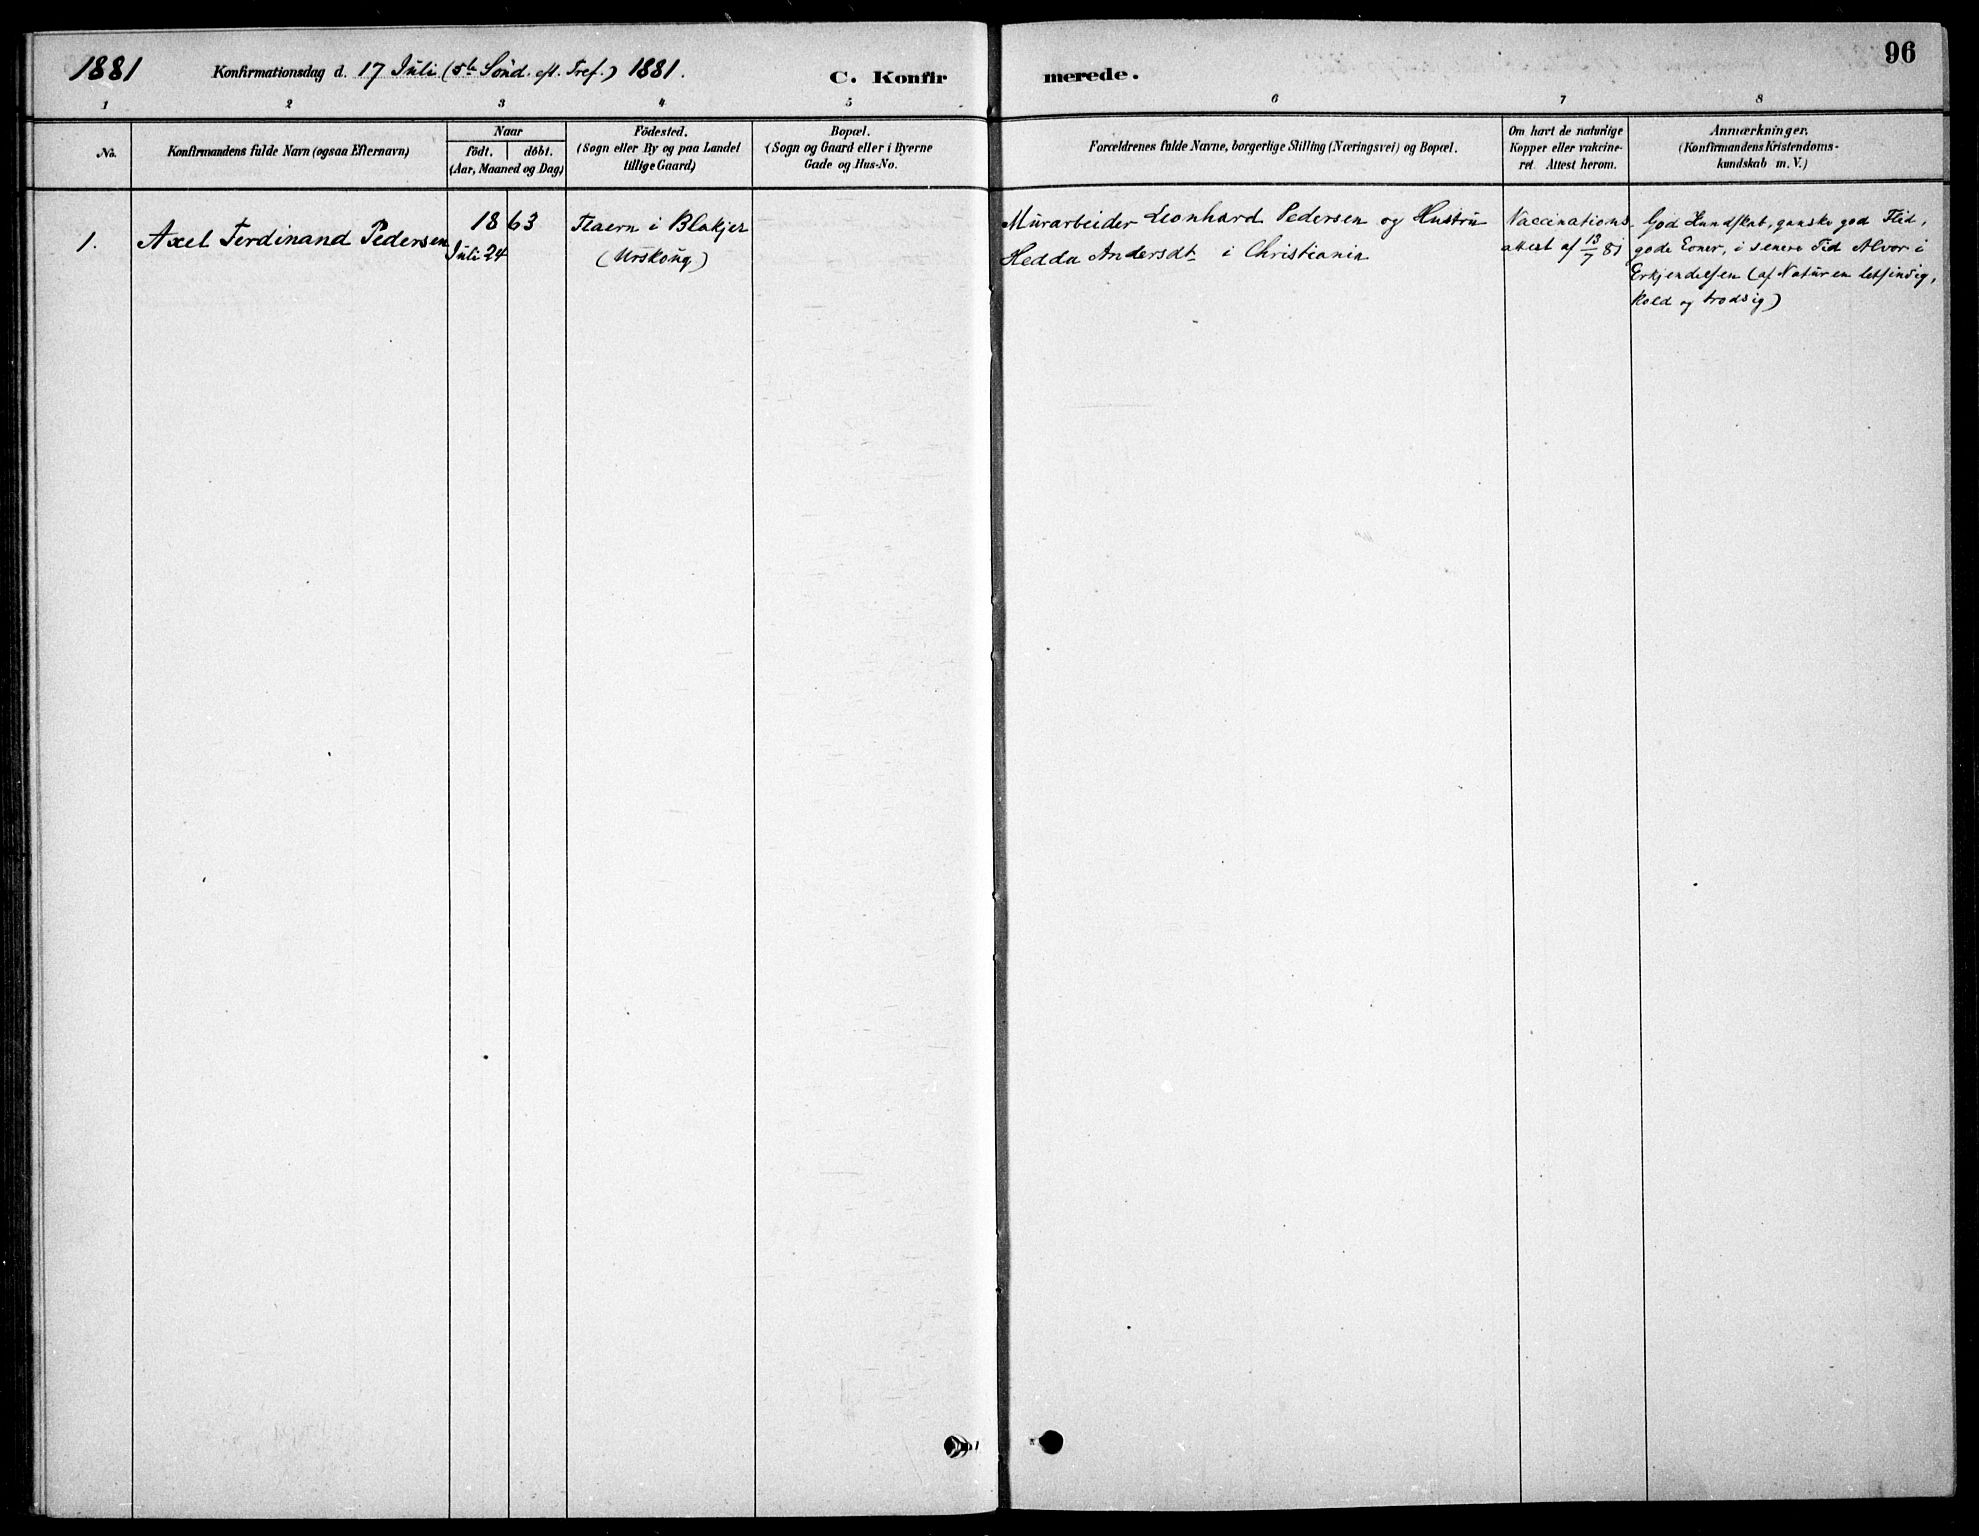 1881 Konfirmationsdag d. 17 Juli (5te Sönd. eft. Tref.) 1881. C. Konfir merede. 96
1 2 3 4 5 6 7 8
No.
Konfirmandens fulde Navn (ogsaa Efternavn)
Naar
födt. döbt.
(Aar, Maaned og Dag)
Födested.
(Sogn eller By og paa Landet
tillige Gaard)
Bopæl.
(Sogn og Gaard eller i Byerne
Gade og Hus-No.
Forældrenes fulde Navne, borgerlige Stilling (Næringsvei) og Bopæl.
Om havt de naturlige
Kopper eller vakcine-
ret. Attest herom.
Anmærkninger.
(Konfirmandens Kristendoms-
kundskab m. V.)
1. Axel Ferdinand Pedersen
1863
Juli 24
i Blakjer
(Urskoug)
Murarbeider Leonhard Pedersen og Hustru
Hedda Andersdt. i Christiania
Vaccinations
attest af 13/7 81
God Kundskab, ganske god Flid,
gode Evner, i senere Tid Alvor i
Erkjendelsen (af Natur en letsindig,
kold og trodsig)